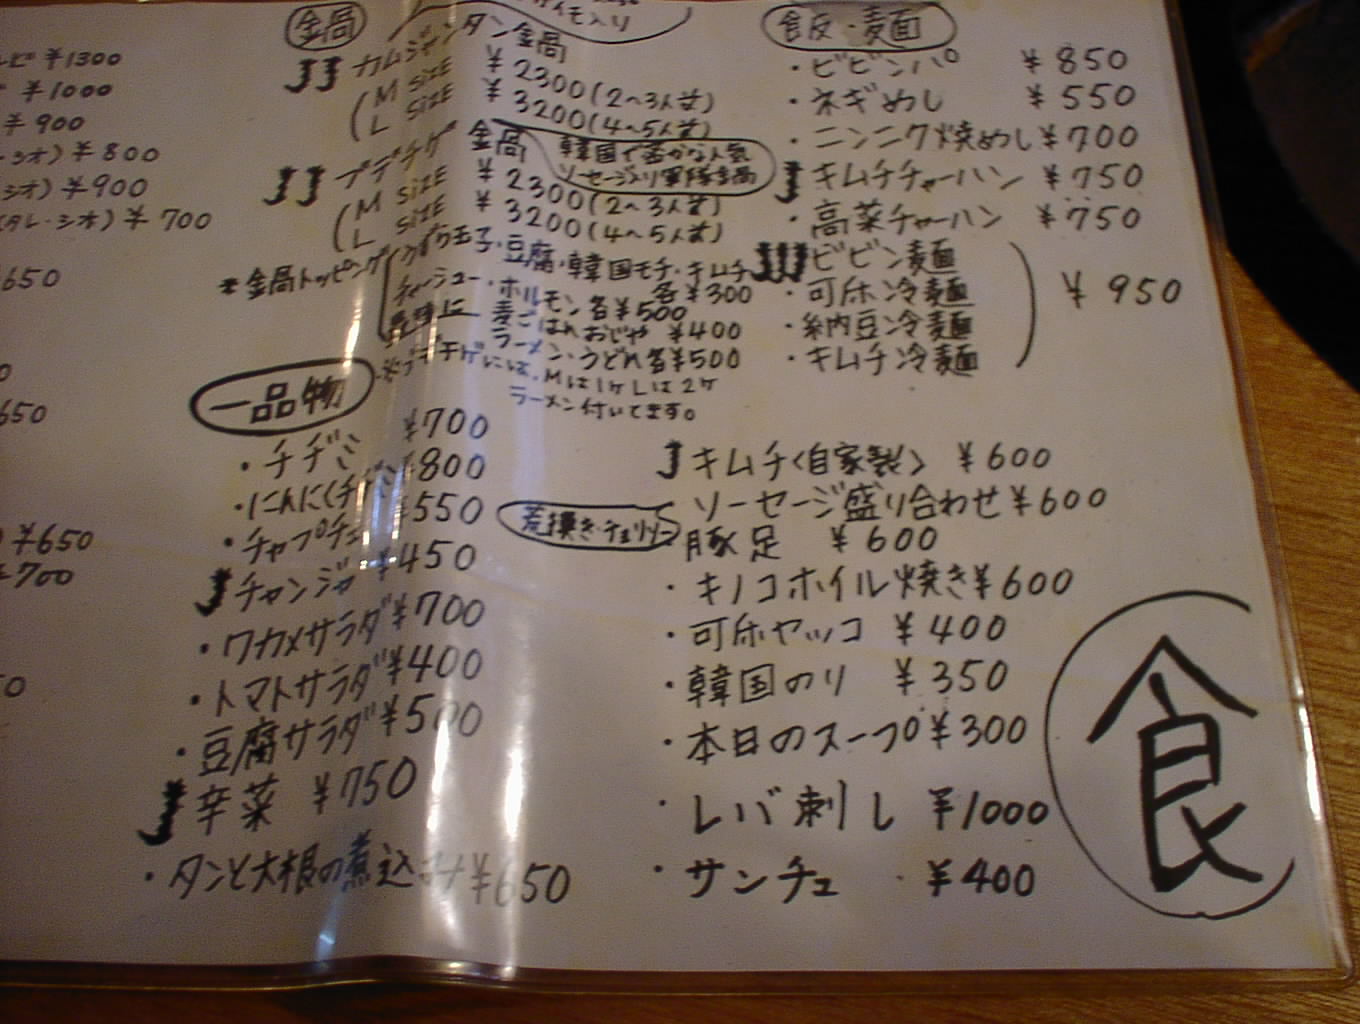 ¥1300
¥1000
¥900
シオ) ¥800
シオ) ¥900
(タレ・シオ) ¥700
650
650
¥650
¥700
鍋
イモ入り
カムジャンタン鍋
(M SIZE ¥2300(2〜3人前)
L SIZE ¥3200(4〜5人前)
プデチゲ鍋
韓国で密かな人気
ソーセージ入り軍隊鍋
(M SIZE ¥2300(2〜3人前)
L SIZE ¥3200(4〜5人前)
*鍋トッピング
うずら玉子・豆腐・韓国モチ・キムチ
各¥300
チャーシュー・ホルモン各¥500
麦ごはんおじや ¥400
ラーメン・うどん各¥500
※プデチゲには、Mは1ヶLは2ヶ
ラーメン付いてます。
一品物
・チヂミ ¥700
・にんにくチヂミ ¥800
・チャプチェ ¥550
チャンジャ ¥450
・ワカメサラダ ¥700
・トマトサラダ ¥400
・豆腐サラダ ¥500
辛菜 ¥750
・タンと大根の煮込み ¥650
飯・麺
・ビビンバ ¥850
・ネギめし ¥550
・ニンニク焼めし ¥700
キムチチャーハン ¥750
・高菜チャーハン ¥750
ビビン麺
・可帋冷麺
・納豆冷麺
・キムチ冷麺
¥950
キムチ〈自家製〉 ¥600
荒挽き・チョリソー
ソーセージ盛り合わせ ¥600
豚足 ¥600
・キノコホイル焼き ¥600
・可帋ヤッコ ¥400
・韓国のり ¥350
・本日のスープ ¥300
・レバ刺し ¥1000
・サンチュ ¥400
食